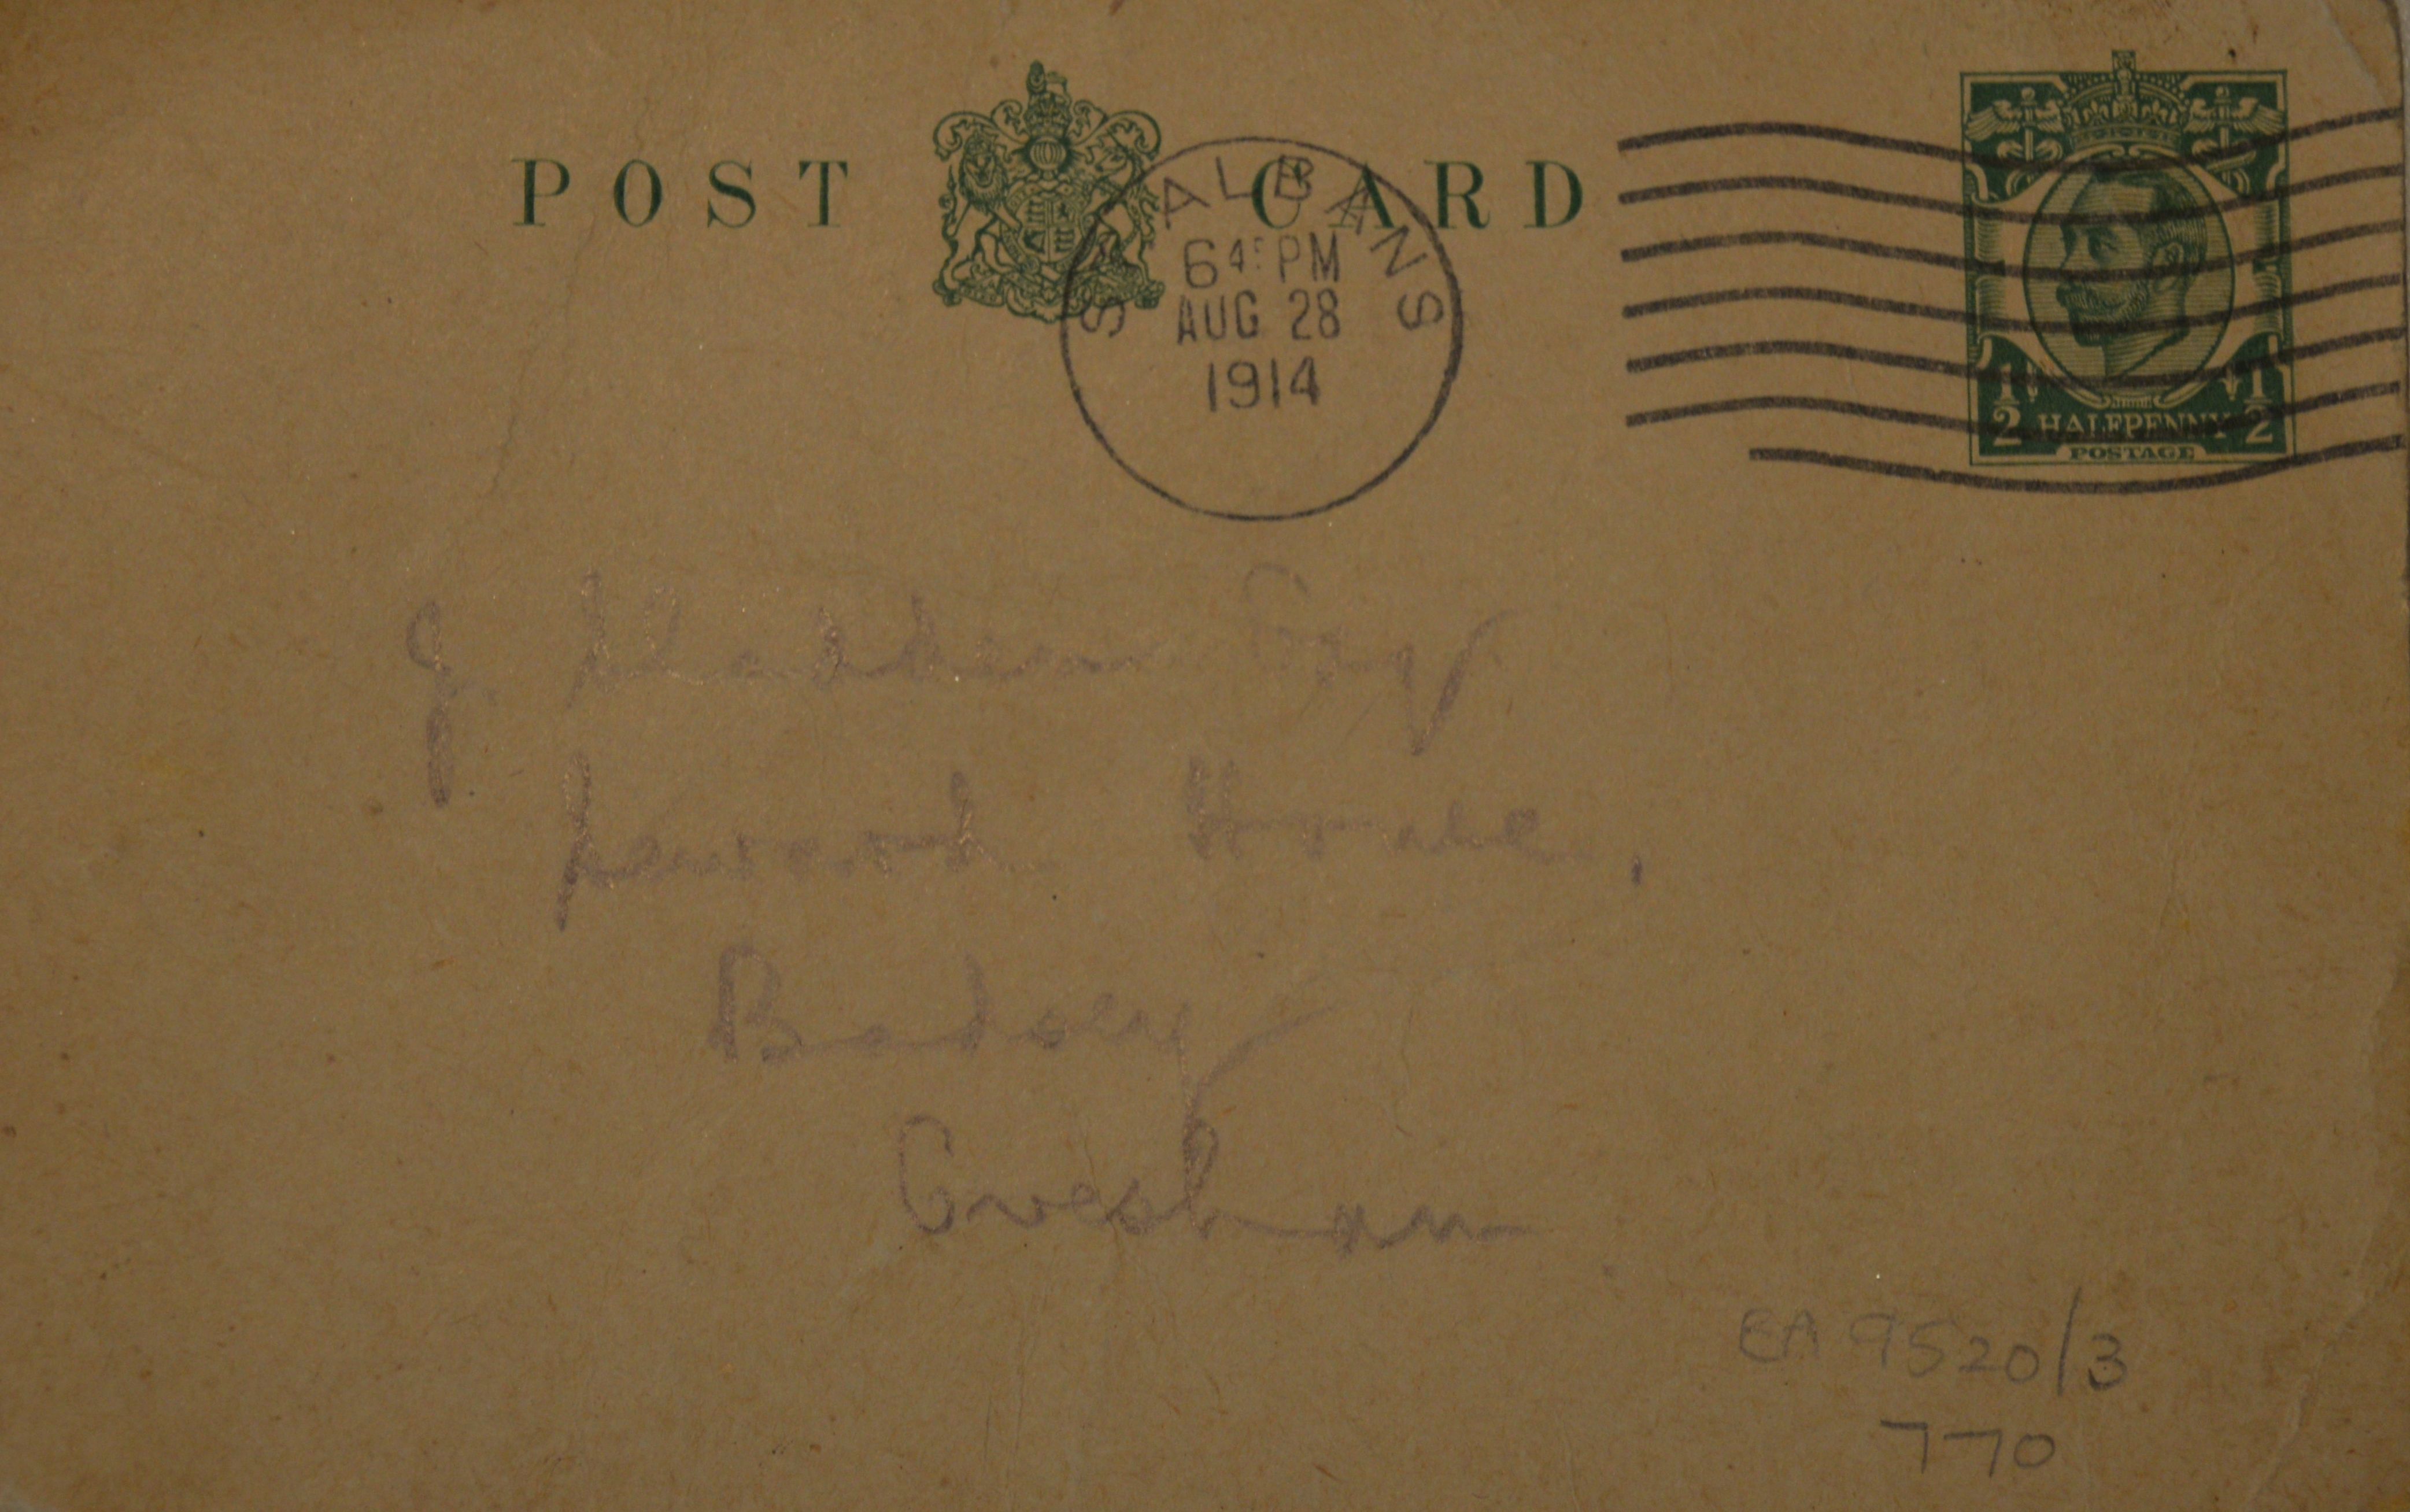 POST CARD
ST ALBANS
6 45 PM
AUG 28
1914
1/2 HALFPENNY 1/2
POSTAGE
J. Sladden Esq
Seward House,
Badsey
Evesham
EA 9520/3
770